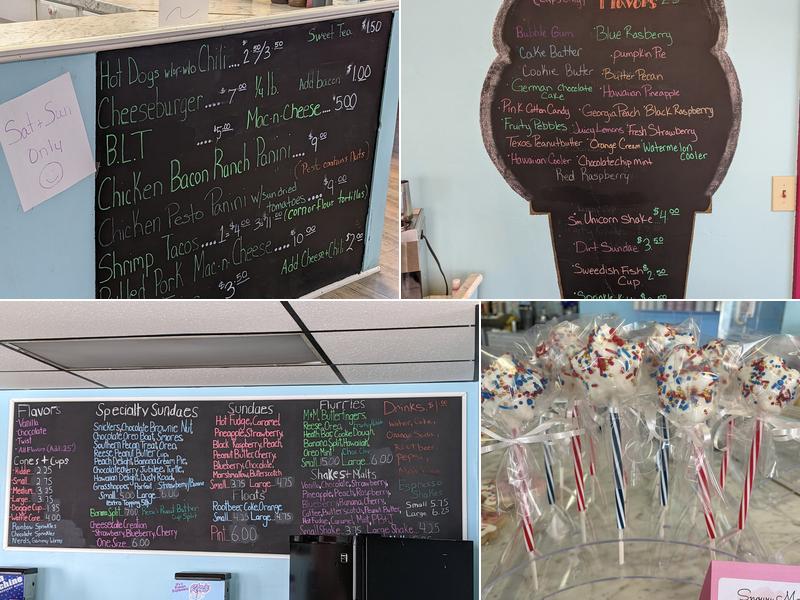 Sweet Tea $1.50
Hot Dogs w/or w/o Chili.... $2.50/3.50
Cheeseburger.... $7.00 1/4 lb. Add bacon $1.00
B.L.T .... $5.00 Mac-n-Cheese.... $5.00
Chicken Bacon Ranch Panini.... $9.00
(Pesto contains Nuts)
Chicken Pesto Panini w/sundried tomatoes.... $9.00
Shrimp Tacos....1-$4.00 3-$11.00 (corn or flour tortillas)
Pulled Pork Mac-n-Cheese.... $10.00
$3.50 Add Cheese+Chili $2.00
Sat + Sun
Only
Flavors
Bubble Gum
Blue Rasberry
Cake Batter
pumpkin Pie
Cookie Butter
Butter Pecan
German Chocolate Cake
Hawaiian Pineapple
Pink Cotton Candy
Georgia Peach
Black Raspberry
Fruity Pebbles
Juicy Lemons
Fresh Strawberry
Texas Peanutbutter
Orange Cream
Watermelon Cooler
Hawaiian Cooler
Chocolate Chip mint
Red Raspberry
Sm Unicorn Shake $4.00
Dirt Sundae $3.50
Sweedish Fish Cup $2.50
Flavors
Vanilla
Chocolate
Twist
All Flavors (Add .25)
Cones + Cups
Kiddie 2.25
Small 2.75
Medium 3.25
Large 3.75
Doggie Cup 1.85
Waffle Cone 4.00
Rainbow Sprinkles
Chocolate Sprinkles
Nerds, Gummy Worms
Specialty Sundaes
Snickers, Chocolate Brownie Nut,
Chocolate Oreo Boat, Smores,
Southern Pecan Treat, Oreo,
Reese Peanut Butter Cup,
Peach Delight, Banana Cream Pie,
Chocolate cherry Jubilee, Turtle,
Hawaiian Delight, Dusty Road,
Small 5.00 Large 6.00
Banana Split 7.00
Cheesecake Creation
Strawberry, Blueberry, Cherry
One Size 6.00
Sundaes
Hot Fudge, Caramel
Pineapple, Strawberry,
Black Raspberry, Peach
Peanut Butter, Cherry,
Blueberry, Chocolate,
Marshmallow, Butterscotch
Small 3.75 Large 4.75
Floats
Rootbeer, Coke, Orange
Small 4.25 Large 4.75
Pint 6.00
Flurries
M+M, Butterfingers,
Reese, Oreo,
Heath Bar, Cookie Dough
Banana Split, Hawaiian,
Oreo Mint
Small 5.00 Large 6.00
Shakes + Malts
Vanilla, Chocolate, Strawberry,
Pineapple, Peach, Raspberry,
Blueberry, Banana, Cherry,
Coffee, Butterscotch, Peanut Butter,
Hot Fudge, Caramel, Mint,
Small Shake 3.75 Large Shake 4.25
Drinks $1.00
Water, Coke,
Orange Soda,
Pepsi
Espresso
Shakes
Small 5.75
Large 6.25